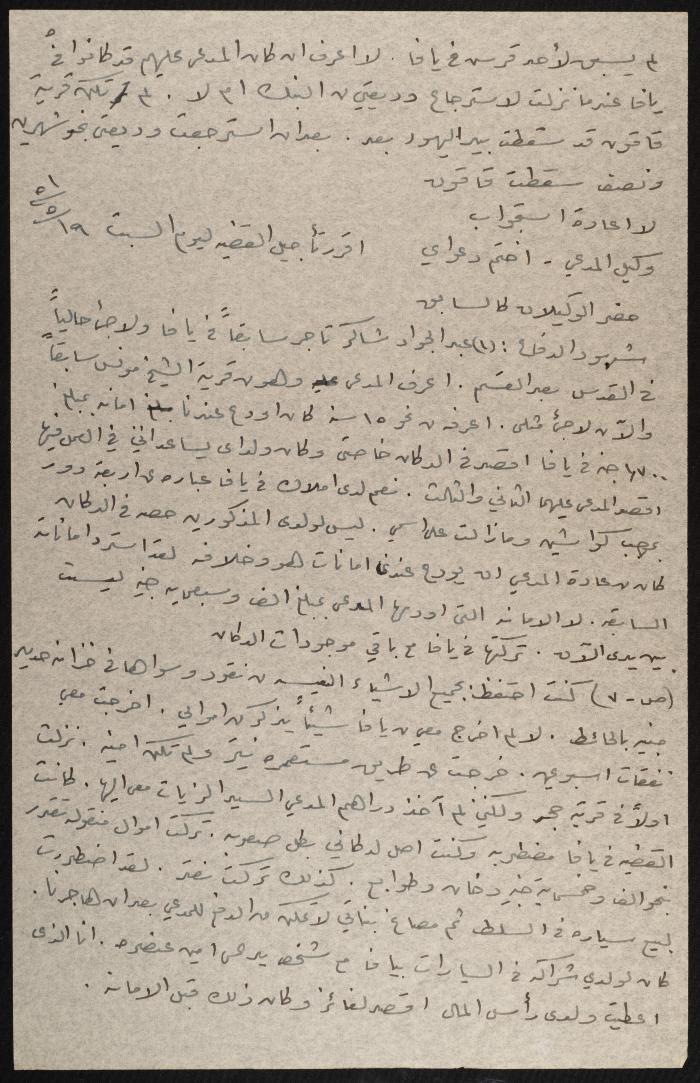 لم يسبق لأحد قرس في يافا . لا اعرف ان كان المدعى عليهم قد كانوا في
يافا عندما نزلت لاسترجاع وديعتي من البنك ام لا . لم تكن قرية
قاقون قد سقطت بيد اليهود بعد . بعد ان استرجعت وديعتي بنحو شهرين
ونصف سقطت قاقون
لا اعادة استجواب
وكيل المدعي - اختم دعواي
اقرر تأجيل القضيه ليوم السبت ١٩/٥/٥١
حضر الوكيلان كالسابق
شهود الدفاع : (١) عبد الجواد شاكر تاجر سابقاً في يافا ولاجئ حالياً
في القدس بعد القسم . اعرف المدعي وهو من قرية الشيخ مونس سابقاً
والآن لاجئ مثلي . اعرفه من نحو ١٥ سنة كان اودع عندنا امانه بمبلغ
١٧٠٠ جنيه في يافا اقصد في الدكان خاصتي وكان ولداي يساعداني في العمل فيها
اقصد المدعى عليهما الثاني والثالث . نعم لدي املاك في يافا عباره عن اربعة دور
بموجب كواشين ومازالت على اسمي . ليس لولدي المذكورين حصه في الدكان
كان من عادة المدعي ان يودع عندنا امانات هو وخلافه لقد استرد اماناته
السابقه . لا الامانه التي اودعها المدعي بمبلغ الف وسبعمايه جنيه ليست
بين يدي الآن . تركتها في يافا مع باقي موجودات الدكان
(ص - ٧) كنت احتفظ بجميع الاشياء النفيسه من نقود وسواها في خزانه حديد
جنبه بالحائط . لا لم اخرج معي من يافا شيئاً يذكر من اموالي . اخرجت معي
نفقات اسبوعين . خرجت عن طريق مستعمره نيتر ولم تكن امينه . نزلت
اولاً في قرية ولكني لم آخذ دراهم المدعي السير الزيات معي اليها . كانت
القضيه في يافا مضطربه وكنت اصل لدكاني بكل صعوبه . تركت اموال منقوله تقدر
بنحو الف وخمسمايه جنيه دخان وطوابع . كذلك تركت . لقد اضطررت
لبيع سياره في السلط ثم مصاغ بناتي لأتمكن من الدفع للمدعي بعد ان هاجرنا .
كان لولدي شراكه في السيارات بيافا مع شخص يدعى امين . انا الذي
اعطيت ولدي رأس المال اقصد لفائز وكان ذلك قبل الامانه .